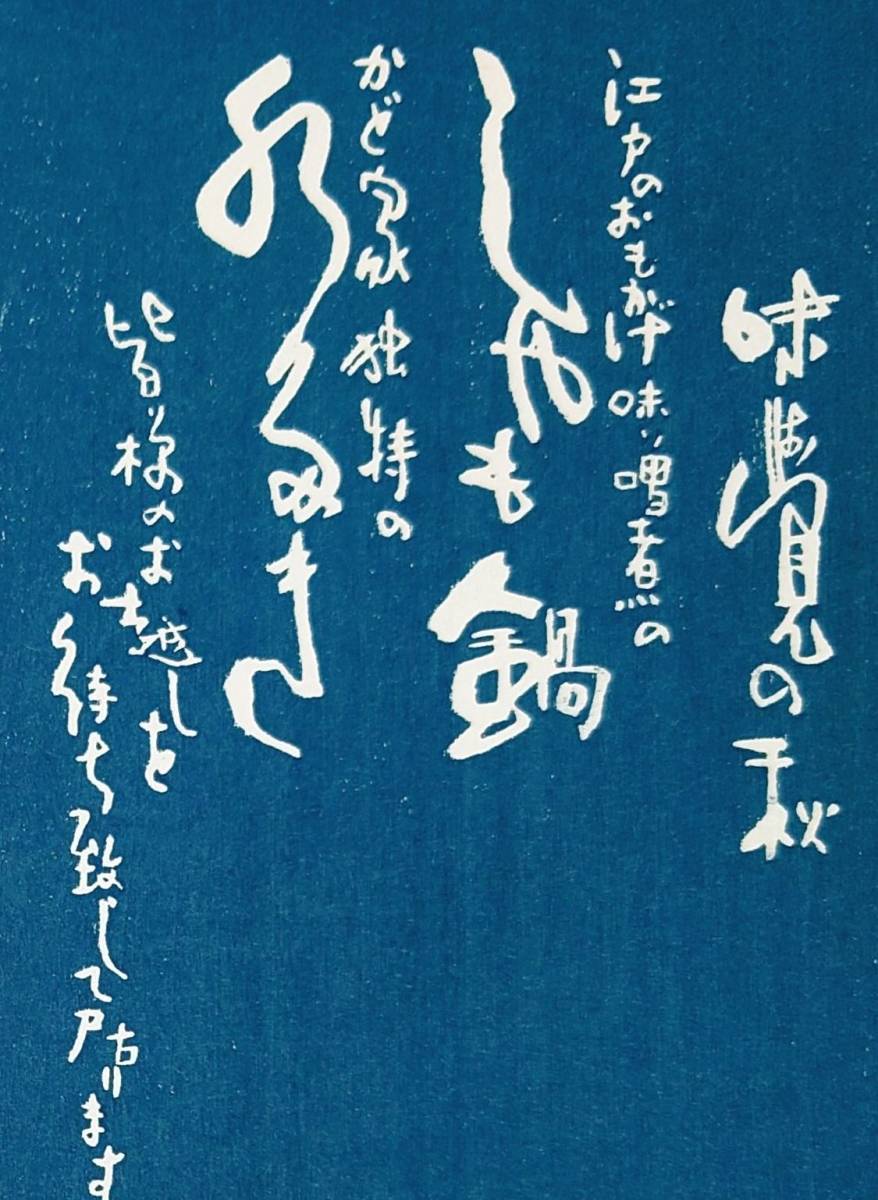 味覚の秋
江戸のおもかげ味噌煮の
しやも鍋
かど家独特の
水たき
皆様のお越しを
お待ち致して居ります